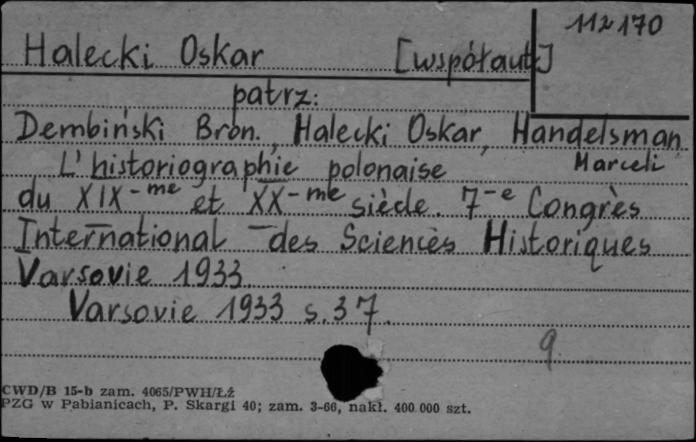 112170
Halecki Oskar [współaut.]
patrz:
Dembiński Bron., Halecki Oskar, Handelsman
Marceli
L'historiographie polonaise
du XIX-me et XX-me siècle. 7-e Congrès
International des Sciencès Historiques
Varsovie 1933.
Varsovie 1933 s. 37.
9.
CWD/B 15-b zam. 4065/PWH/Łź
PZG w Pabianicach, P. Skargi 40; zam. 3-66, nakł. 400.000 szt.